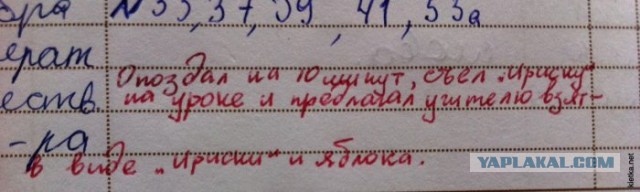 ора № 35, 37, 39, 41, 53а
ерат
Опоздал на 10 минут, съел „Ириску"
еств. на уроке и предлагал учителю взят-
-ра
в виде „Ириски" и яблока.
YAPLAKAL.COM